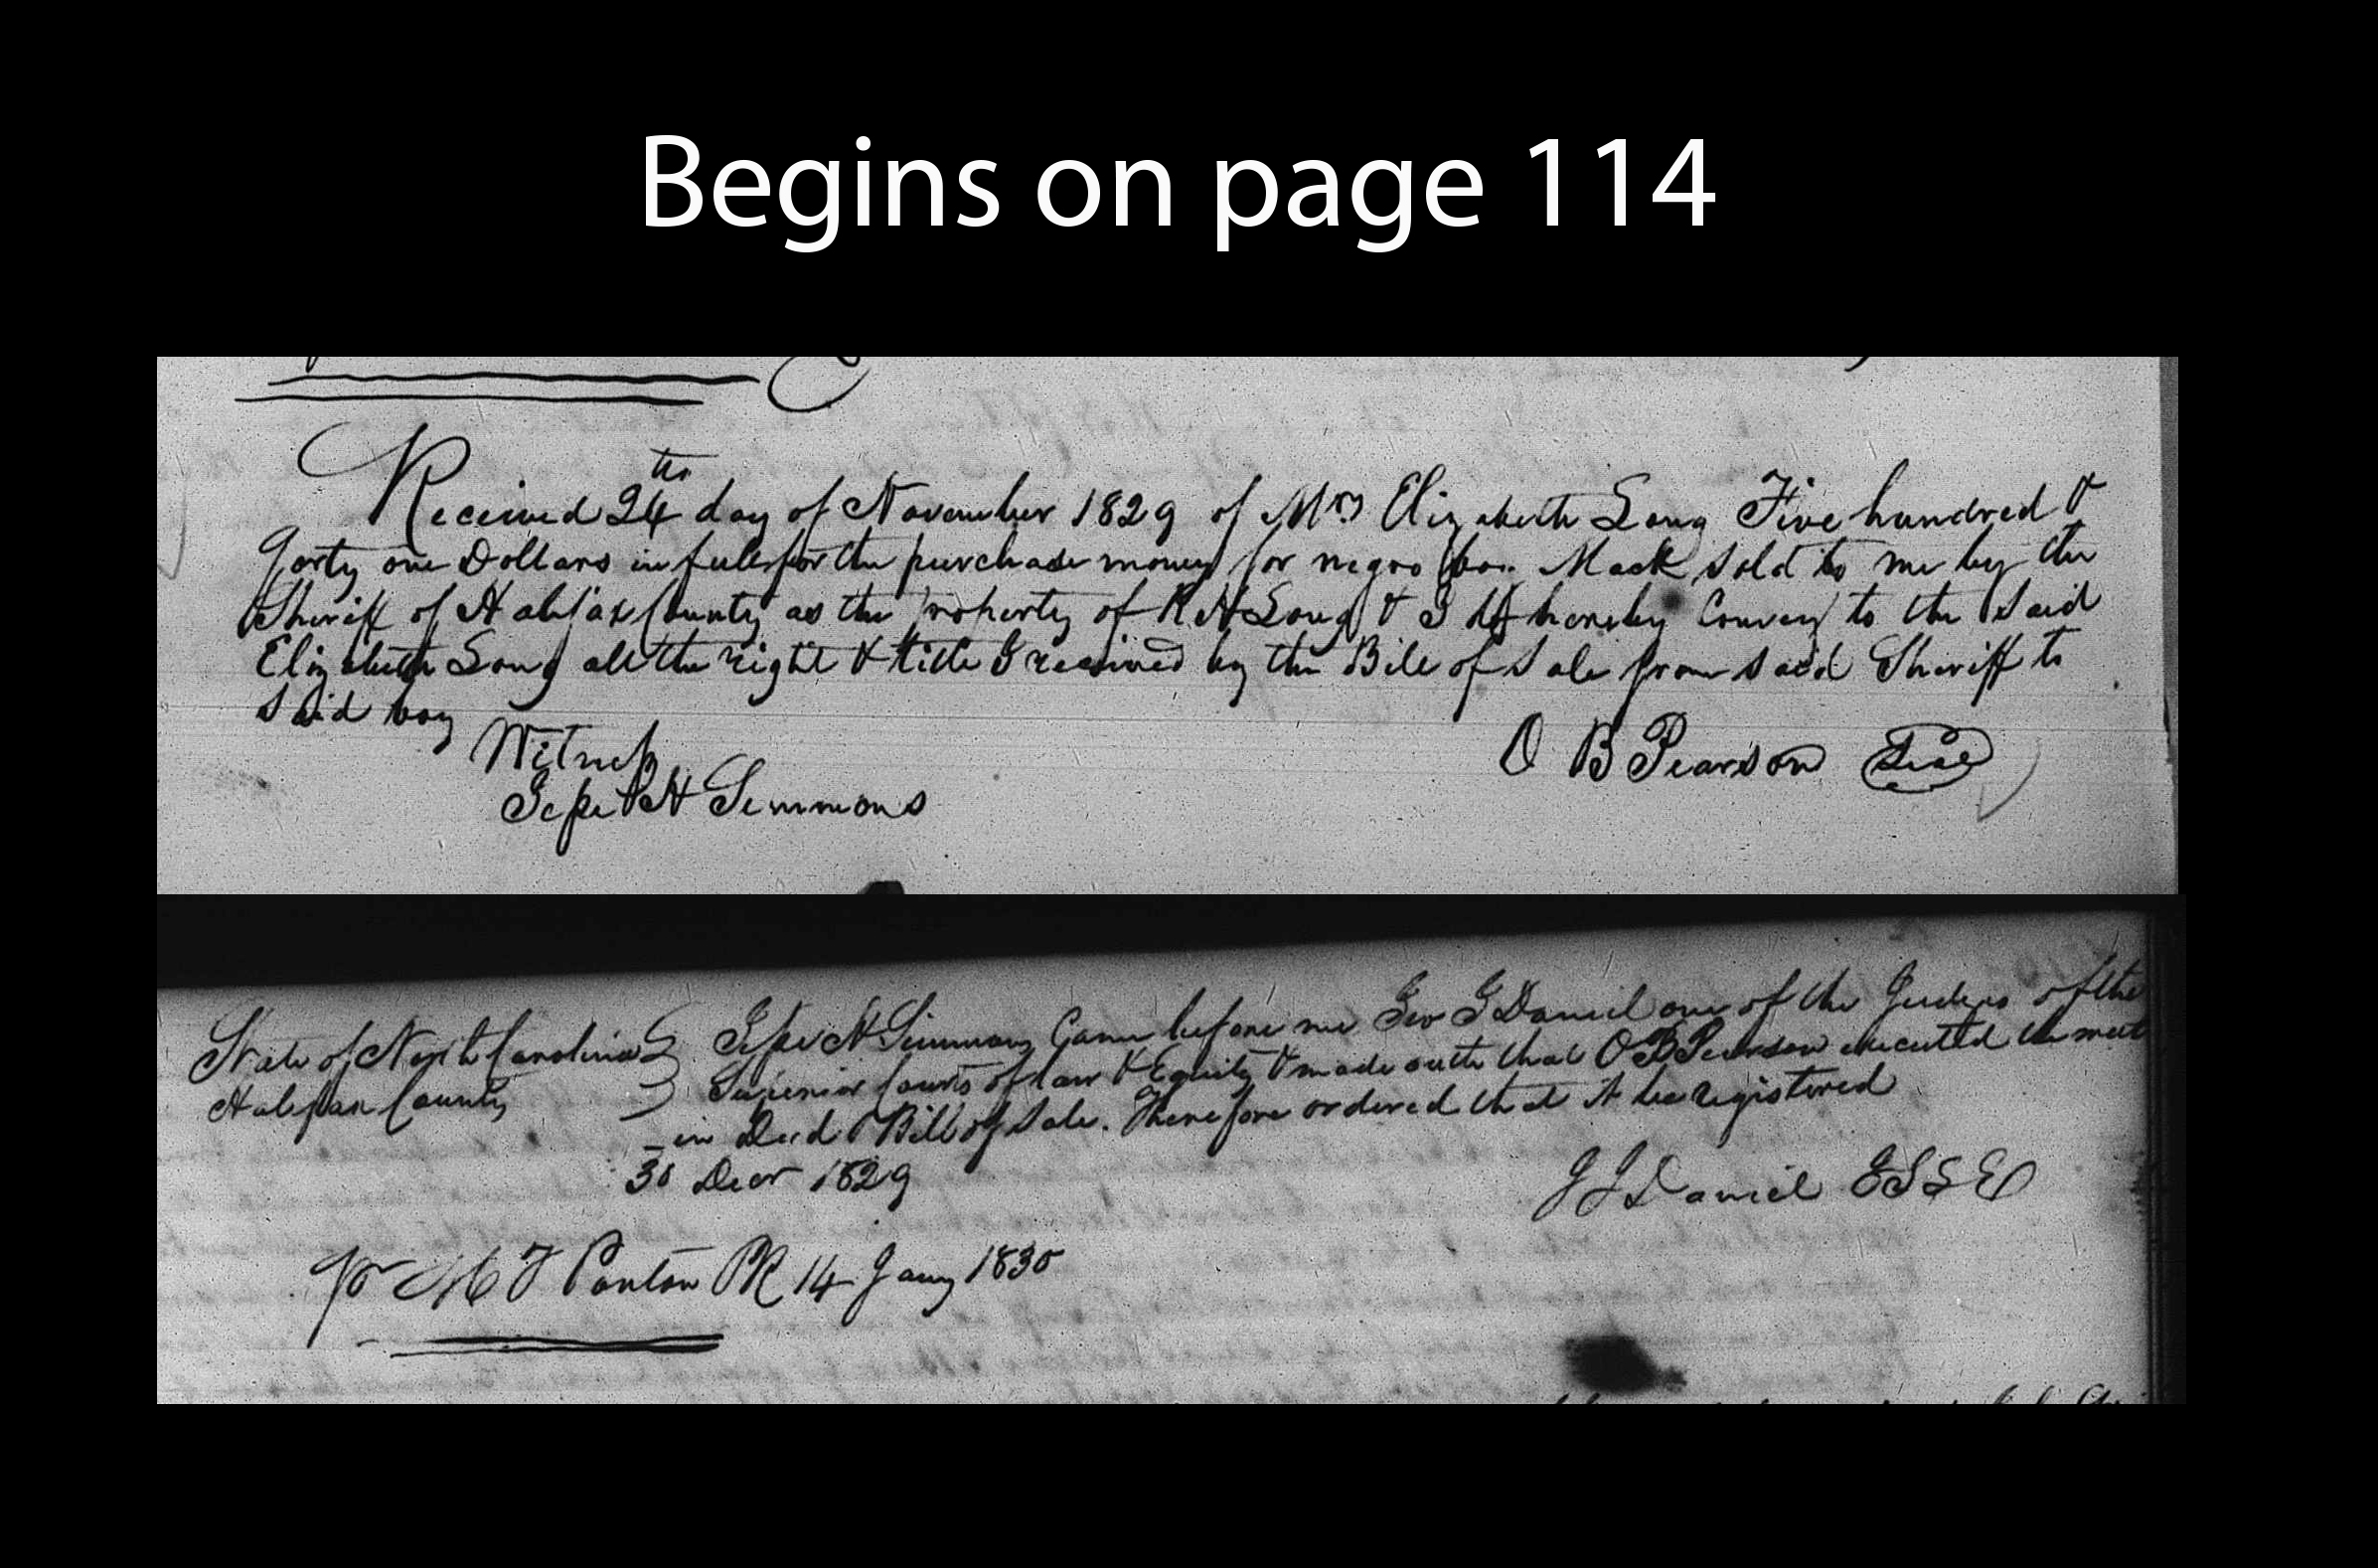 Begins on page 114
Received 24th day of November 1829 of Mrs Elizabeth Long Five hundred &
forty one Dollars in full for the purchase money for negro boy Mack sold to me by the
Sheriff of Halifax County as the property of R H Long & I do hereby Convey to the said
Elizabeth Long all the right & title I received by the Bill of Sale from said Sheriff to
said boy
Witness
O B Pearson Seal
H Simmons
State of North Carolina
H Simmons Came before me Daniel one of the Judges of the
Halifax County
Superior Courts of law & Equity & made oath that O B Pearson executed the
in Deed Bill of Sale. Therefore ordered that it be registered
30 Decr 1829
J J Daniel
Ponton PR 14 Jany 1830